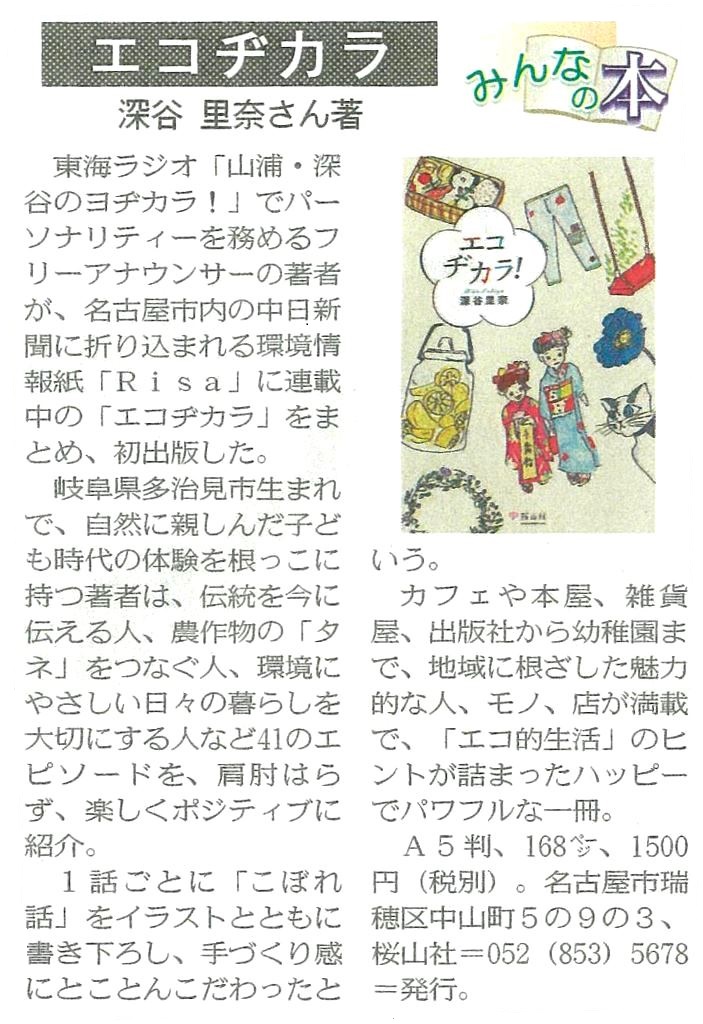 エコヂカラ
深谷 里奈さん著
みんなの本
東海ラジオ「山浦・深
谷のヨヂカラ！」でパー
ソナリティーを務めるフ
リーアナウンサーの著者
が、名古屋市内の中日新
聞に折り込まれる環境情
報紙「Ｒｉｓａ」に連載
中の「エコヂカラ」をま
とめ、初出版した。
岐阜県多治見市生まれ
で、自然に親しんだ子ど
も時代の体験を根っこに
持つ著者は、伝統を今に
伝える人、農作物の「タ
ネ」をつなぐ人、環境に
やさしい日々の暮らしを
大切にする人など41のエ
ピソードを、肩肘はら
ず、楽しくポジティブに
紹介。
１話ごとに「こぼれ
話」をイラストとともに
書き下ろし、手づくり感
にとことんこだわったと
エコ
ヂカラ!
深谷里奈
桜山社
いう。
カフェや本屋、雑貨
屋、出版社から幼稚園ま
で、地域に根ざした魅力
的な人、モノ、店が満載
で、「エコ的生活」のヒ
ントが詰まったハッピー
でパワフルな一冊。
Ａ５判、168㌻、1500
円（税別）。名古屋市瑞
穂区中山町５の９の３、
桜山社＝052（853）5678
＝発行。